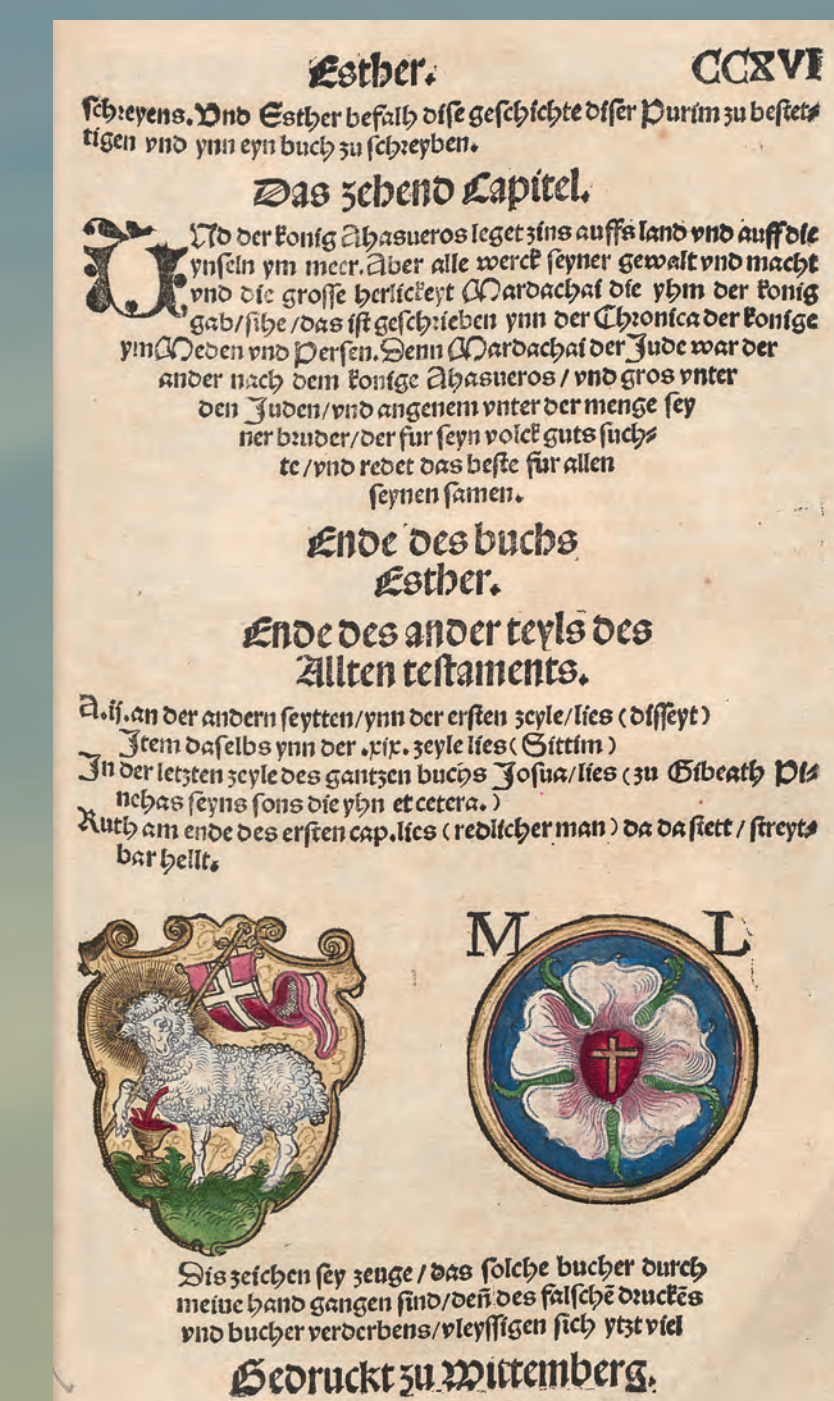 Esther. CCXVI
schreyens. Vnd Esther befalh dise geschichte diser Purim zu bestet⸗
tigen vnd ynn eyn buch zu schreyben.
Das zehend Capitel.
VNd der konig Ahasueros leget zins auffs land vnd auff die
ynseln ym meer. Aber alle werck seyner gewalt vnd macht
vnd die grosse herlickeyt Mardachai die yhm der konig
gab/sihe/das ist geschrieben ynn der Chronica der konige
ym Meden vnd Persen. Denn Mardachai der Jude war der
ander nach dem konige Ahasueros/vnd gros vnter
den Juden/vnd angenem vnter der menge sey
ner bruder/der fur seyn volck guts such⸗
te/vnd redet das beste fur allen
seynen samen.
Ende des buchs
Esther.
Ende des ander teyls des
Allten testaments.
A.ij. an der andern seytten/ynn der ersten zeyle/lies (disseyt)
Item daselbs ynn der .xix. zeyle lies (Sittim)
In der letzten zeyle des gantzen buchs Josua/lies (zu Gibeath Pi⸗
nehas seyns sons die yhn et cetera.)
Ruth am ende des ersten cap. lies (redlicher man) da da stett/streyt⸗
bar hellt.
M L
Dis zeichen sey zeuge/das solche bucher durch
meine hand gangen sind/deñ des falschē druckēs
vnd bucher verderbens/vleyssigen sich ytzt viel
Gedruckt zu Wittemberg.